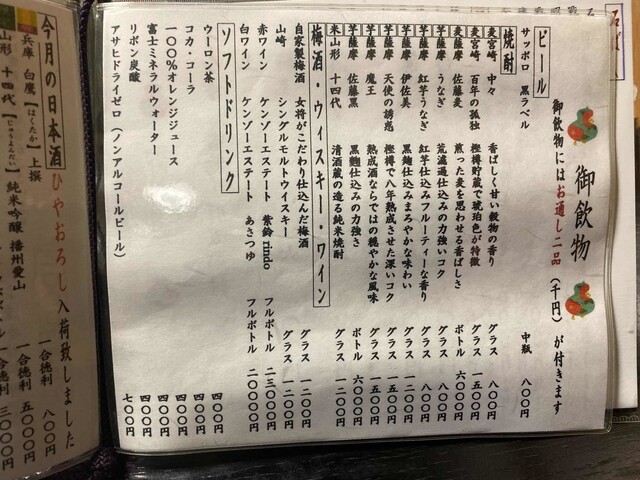 御飲物
御飲物にはお通し二品(千円)が付きます
ビール
サッポロ 黒ラベル 中瓶 八〇〇円
焼酎
麦 宮崎 中々 香ばしく甘い穀物の香り グラス 八〇〇円
麦 宮崎 百年の孤独 樫樽貯蔵で琥珀色が特徴 グラス 一五〇〇円
麦 薩摩 佐藤麦 煎った麦を思わせる香ばしさ ボトル 六〇〇〇円
芋 薩摩 うなぎ 荒濾過仕込みの力強いコク グラス 八〇〇円
芋 薩摩 紅芋うなぎ 紅芋仕込みフルーティーな香り グラス 八〇〇円
芋 薩摩 伊佐美 黒麹仕込みまろやかな味わい グラス 一二〇〇円
芋 薩摩 天使の誘惑 樫樽で八年熟成させた深いコク グラス 一五〇〇円
芋 薩摩 魔王 熟成酒ならではの穏やかな風味 グラス 一五〇〇円
芋 薩摩 佐藤黒 黒麹仕込みの力強さ ボトル 六〇〇〇円
米 山形 十四代 清酒蔵の造る純米焼酎 グラス 一二〇〇円
梅酒・ウィスキー・ワイン
自家製梅酒 女将がこだわり仕込んだ梅酒 グラス 一二〇〇円
山崎 シングルモルトウイスキー グラス 一二〇〇円
赤ワイン ケンゾーエステート 紫鈴rindo フルボトル 二三〇〇〇円
白ワイン ケンゾーエステート あさつゆ フルボトル 二〇〇〇〇円
ソフトドリンク
ウーロン茶 四〇〇円
コカ・コーラ 四〇〇円
一〇〇%オレンジジュース 四〇〇円
富士ミネラルウォーター 四〇〇円
リボン炭酸 四〇〇円
アサヒドライゼロ(ノンアルコールビール) 七〇〇円
今月の日本酒 ひやおろし入荷致しました
兵庫 白鷹[はくたか]上撰 一合徳利 八〇〇円
山形 十四代[じゅうよんだい]純米吟醸 播州愛山 一合徳利 五〇〇〇円